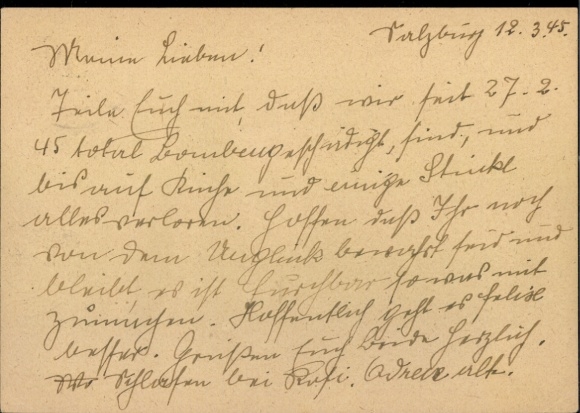 Salzburg 12. 3.45.
Meine Lieben!
Teile Euch mit, daß wir seit 27. 2.
45 total Bombengeschädigt, sind, und
bis auf Küche und einige Stückl
alles verloren. Hoffen daß Ihr noch
von dem Unglück bewahrt seid und
bleibt, es ist furchbar sowas mit
zumachen. Hoffentlich geht es Felix
besser. Grüßen Euch beide herzlich.
Wo Schlafen bei Rosi. Adresse alte.